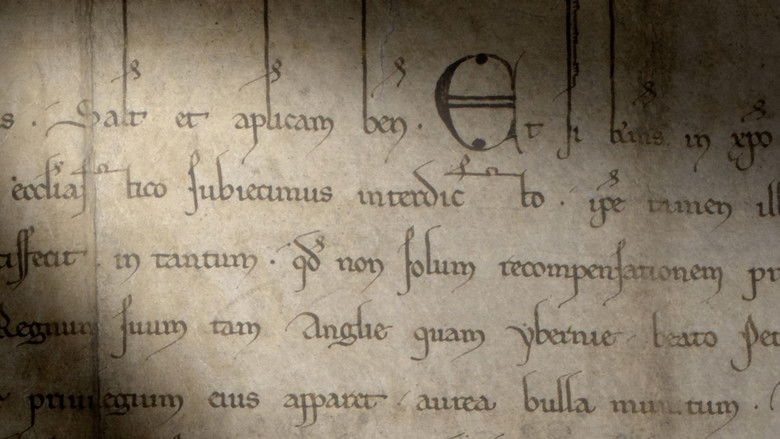 s. Salt et aplicam ben. Et si in xpo
ecclias tico subiecimus interdic to. ipe tamen ill
tisfecit in tantum. qd non solum recompensationem pr
Regnum suum tam Anglie quam ybernie beato Pet
privilegium eius apparet. aurea bulla munitum.